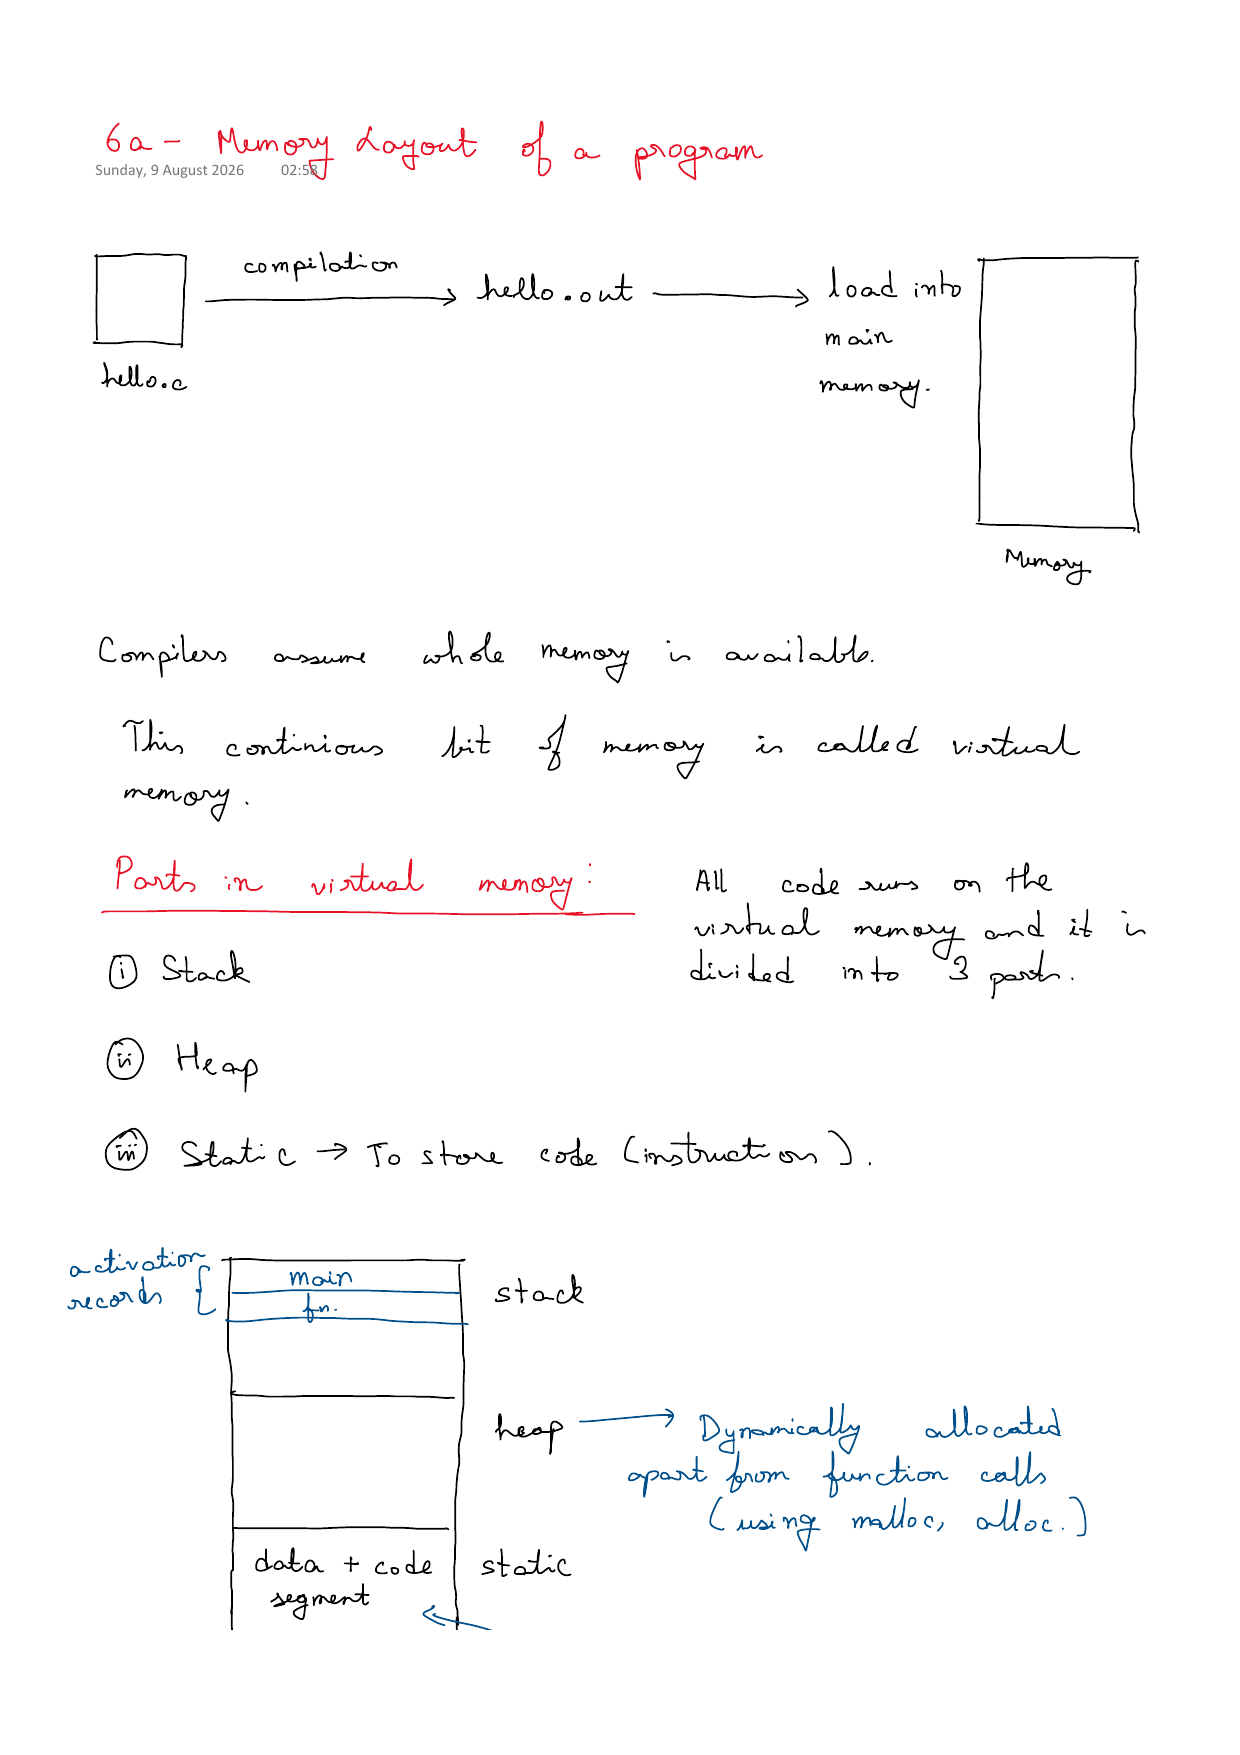 6a - Memory Layout of a program
Sunday, 9 August 2026 02:58
compilation
hello.out
load into
main
memory.
hello.c
Memory
Compilers assume whole memory is available.
This continious bit of memory is called virtual
memory.
Parts in virtual memory:
All code runs on the
virtual memory and it is
divided into 3 parts.
i Stack
ii Heap
iii Static → To store code (instructions).
activation
records
main
fn.
stack
heap
Dynamically allocated
apart from function calls
(using malloc, alloc.)
data + code
segment
static